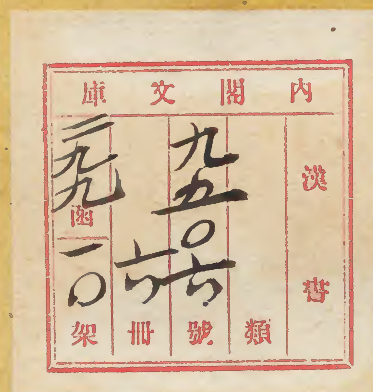 內閣文庫
漢書
類
九五〇六號
六冊
二九九函
一〇架